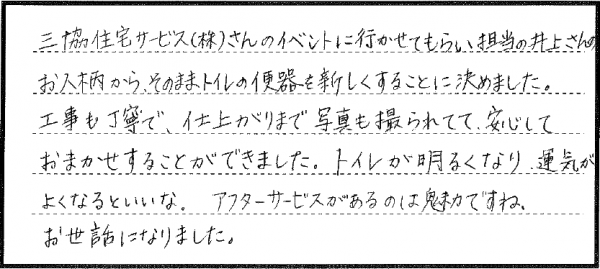 三協住宅サービス(株)さんのイベントに行かせてもらい、担当の井上さんの
お人柄から、そのままトイレの便器を新しくすることに決めました。
工事も丁寧で、仕上がりまで写真も撮られてて、安心して
おまかせすることができました。トイレが明るくなり、運気が
よくなるといいな。 アフターサービスがあるのは魅力ですね。
お世話になりました。